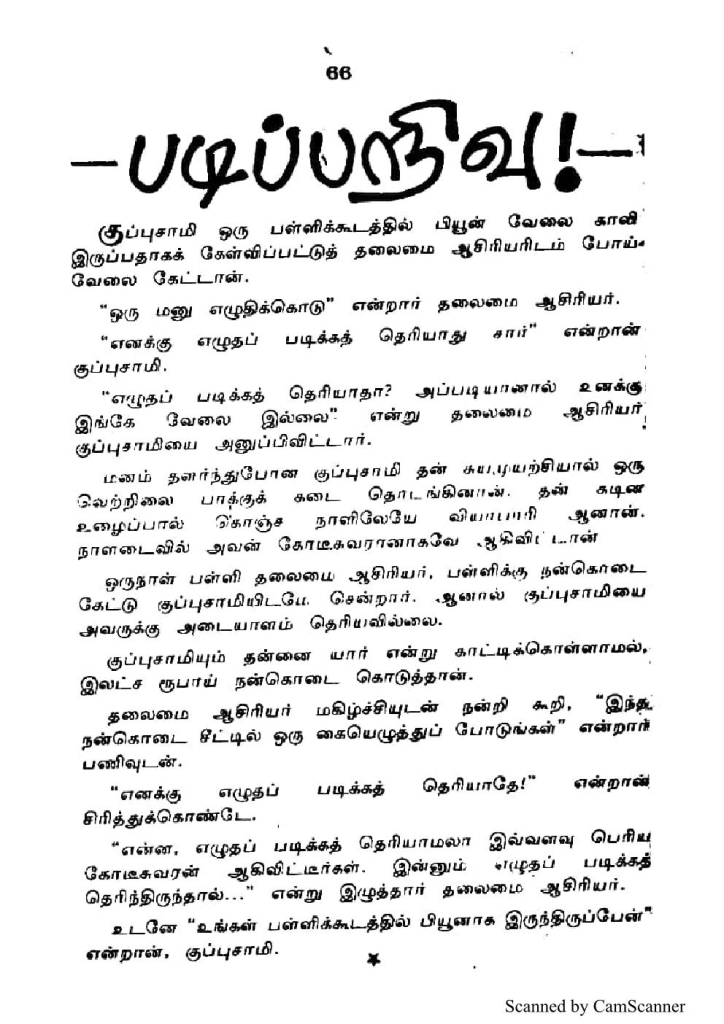 66
படிப்பறிவு!
குப்புசாமி ஒரு பள்ளிக்கூடத்தில் பியூன் வேலை காலி
இருப்பதாகக் கேள்விப்பட்டுத் தலைமை ஆசிரியரிடம் போய்
வேலை கேட்டான்.
“ஒரு மனு எழுதிக்கொடு” என்றார் தலைமை ஆசிரியர்.
“எனக்கு எழுதப் படிக்கத் தெரியாது சார்” என்றான்
குப்புசாமி.
“எழுதப் படிக்கத் தெரியாதா? அப்படியானால் உனக்கு
இங்கே வேலை இல்லை” என்று தலைமை ஆசிரியர்
குப்புசாமியை அனுப்பிவிட்டார்.
மனம் தளர்ந்துபோன குப்புசாமி தன் சுயமுயற்சியால் ஒரு
வெற்றிலை பாக்குக் கடை தொடங்கினான். தன் கடின
உழைப்பால் கொஞ்ச நாளிலேயே வியாபாரி ஆனான்.
நாளடைவில் அவன் கோடீசுவரனாகவே ஆகிவிட்டான்
ஒருநாள் பள்ளி தலைமை ஆசிரியர், பள்ளிக்கு நன்கொடை
கேட்டு குப்புசாமியிடமே சென்றார். ஆனால் குப்புசாமியை
அவருக்கு அடையாளம் தெரியவில்லை.
குப்புசாமியும் தன்னை யார் என்று காட்டிக்கொள்ளாமல்,
இலட்ச ரூபாய் நன்கொடை கொடுத்தான்.
தலைமை ஆசிரியர் மகிழ்ச்சியுடன் நன்றி கூறி, “இந்த
நன்கொடை சீட்டில் ஒரு கையெழுத்துப் போடுங்கள்” என்றார்
பணிவுடன்.
“எனக்கு எழுதப் படிக்கத் தெரியாதே!” என்றான்
சிரித்துக்கொண்டே.
“என்ன, எழுதப் படிக்கத் தெரியாமலா இவ்வளவு பெரிய
கோடீசுவரன் ஆகிவிட்டீர்கள். இன்னும் எழுதப் படிக்கத்
தெரிந்திருந்தால்...” என்று இழுத்தார் தலைமை ஆசிரியர்.
உடனே “உங்கள் பள்ளிக்கூடத்தில் பியூனாக இருந்திருப்பேன்”
என்றான், குப்புசாமி.
Scanned by CamScanner